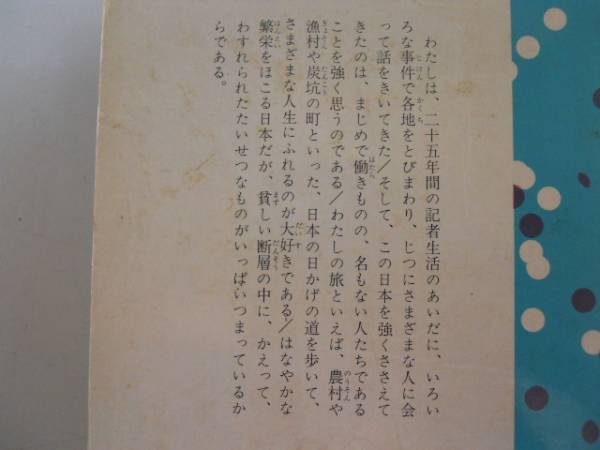 わたしは、二十五年間の記者生活のあいだに、いろい
ろな事件で各地をとびまわり、じつにさまざまな人に会
って話をきいてきた/そして、この日本を強くささえて
きたのは、まじめで働きものの、名もない人たちである
ことを強く思うのである/わたしの旅といえば、農村や
漁村や炭坑の町といった、日本の日かげの道を歩いて、
さまざまな人生にふれるのが大好きである/はなやかな
繁栄をほこる日本だが、貧しい断層の中に、かえって、
わすれられたたいせつなものがいっぱいつまっているか
らである。